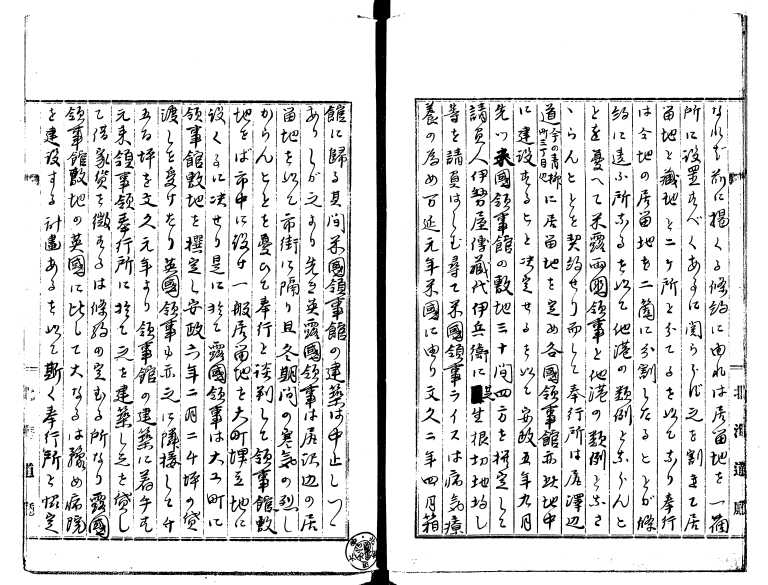 なれども前に掲くる條約に由れは居留地を一箇
所に設置すべくあるに関らず之を割きて居
留地と蔵地と二ケ所と分てるを以てより奉行
は今地の居留地を二箇に分割したるとが條
約に違ふ所あるを以て他港の類例とならんこ
とを憂へて米露両國領事と他港の類例となさ
ゝらんことを契約せり而して奉行所は居澤辺
道今の青柳町三丁目也に居留地を定め各國領事館亦此地中
に建設することと決定せるを以て安政五年九月
先ツ米國領事館の敷地三十間四方を撰定して
請負人伊勢屋傳蔵代伊兵衛に生根切地均し
等を請負はしむ尋て米國領事ライスは病気療
養の為め万延元年米國に由り文久二年四月箱
館に歸る其间米國領事館の建築は中止しつゝ
ありしが之より先き英露國領事は居沢辺の居
留地を以て市街に隔り且冬期間の寒気の烈し
からんことを憂ひて奉行と談判して領事館敷
地をば市中に設け一般居留地を大町埋立地に
設くるに決せり是に於て露國領事は大工町に
領事館敷地を撰定し安政六年二月二千坪の貸
渡しを受けたり英國領事も亦之に隣接して千
五百坪を文久元年より領事館の建築に着手す
元来領事館奉行所に於て之を建築し之を貸し
て借家賃を徴するは條約の定むる所なり露國
領事館敷地の英國に比して大なるは豫め病院
を建設する計畫あるを以て斯く奉行所と協定
北海道廳